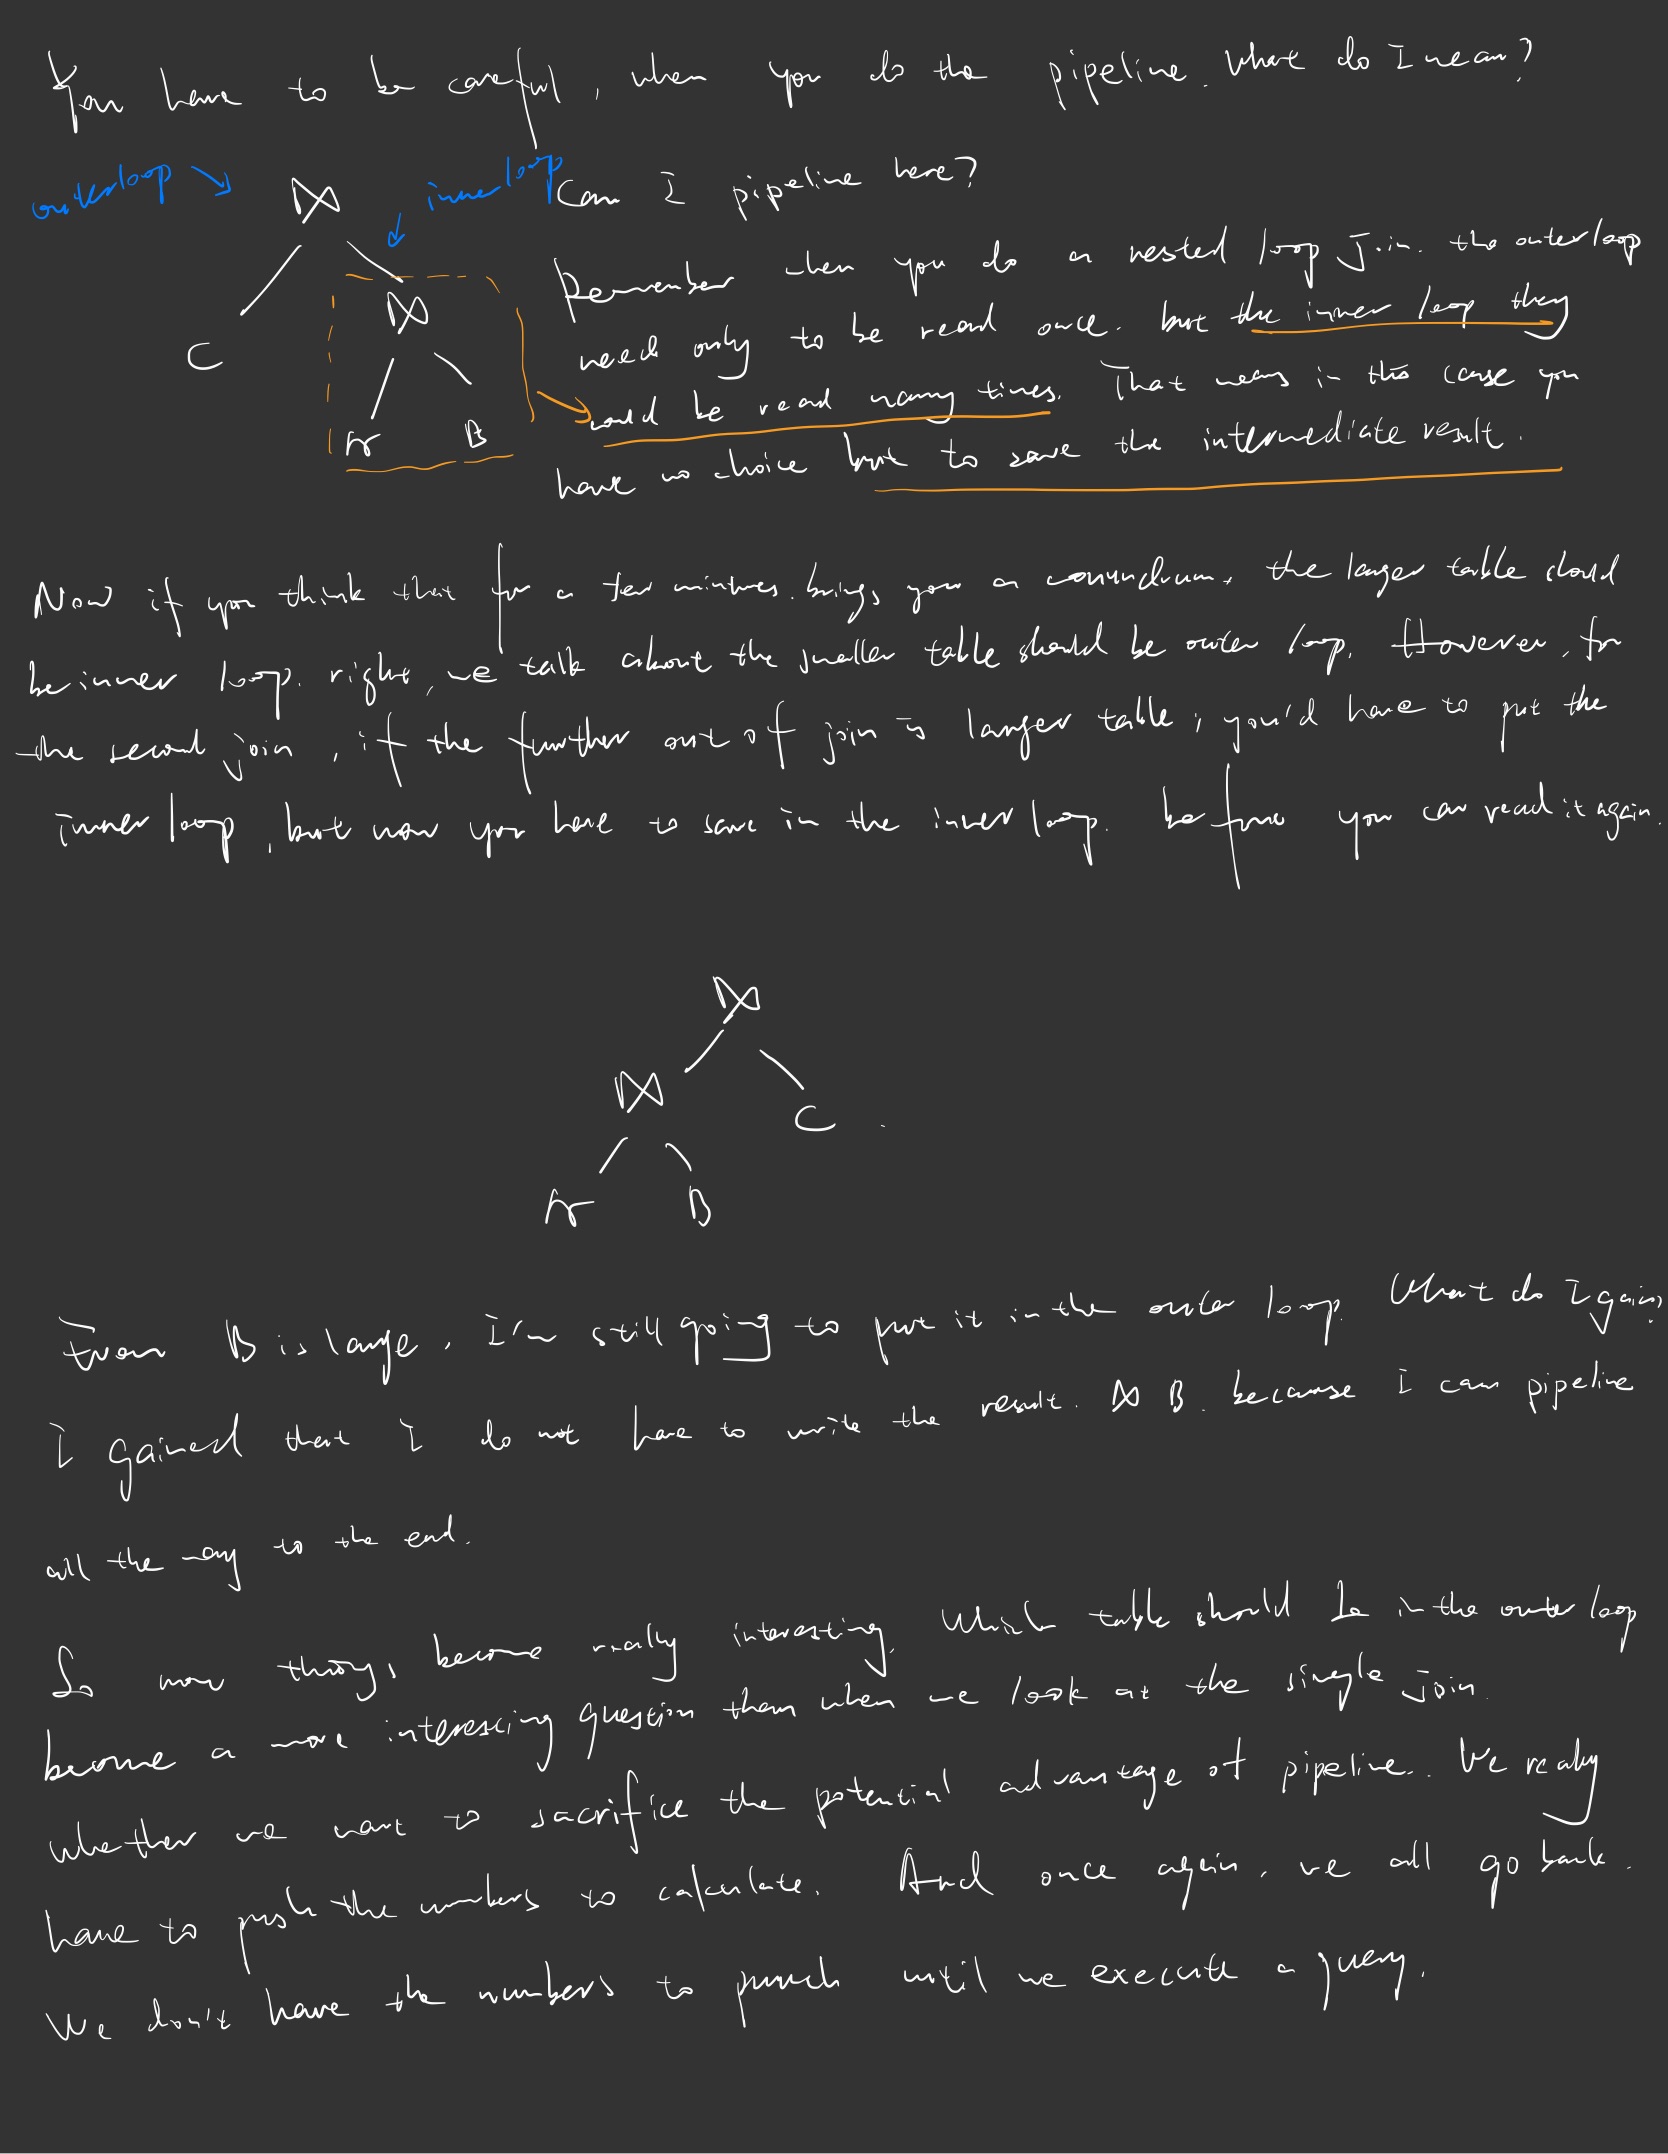 You have to be careful, when you do the pipeline. What do I mean?
outerloop
innerloop
Can I pipeline here?
Remember when you do a nested loop Join. the outerloop
need only to be read once. but the inner loop they
C
could be read many times. That means in this case you
A B
have no choice but to save the intermediate result.
Now if you think that for a few minutes. brings you a conundrum, the larger table should
be inner loop. right, we talk about the smaller table should be outer loop. However, for
the second join, if the further out of join is larger table, you'd have to put the
inner loop, but now you have to save in the inner loop. before you can read it again.
⋈
⋈
C
A B
Even B is large, I'm still going to put it in the outer loop. What do I gain?
I gained that I do not have to write the result. ⋈ B. because I can pipeline
all the way to the end.
So now things become really interesting. Which table should be in the outer loop
become a more interesting question than when we look at the single join.
Whether we want to sacrifice the potential advantage of pipeline. We really
have to push the numbers to calculate. And once again, we all go back.
We don't have the numbers to punch until we execute a query.